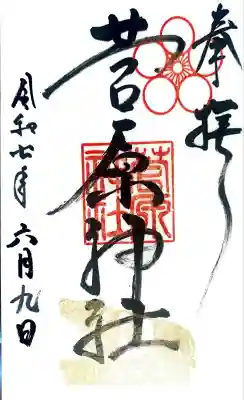 奉拝
菅原神社
菅原
神社
令和七年 六月九日